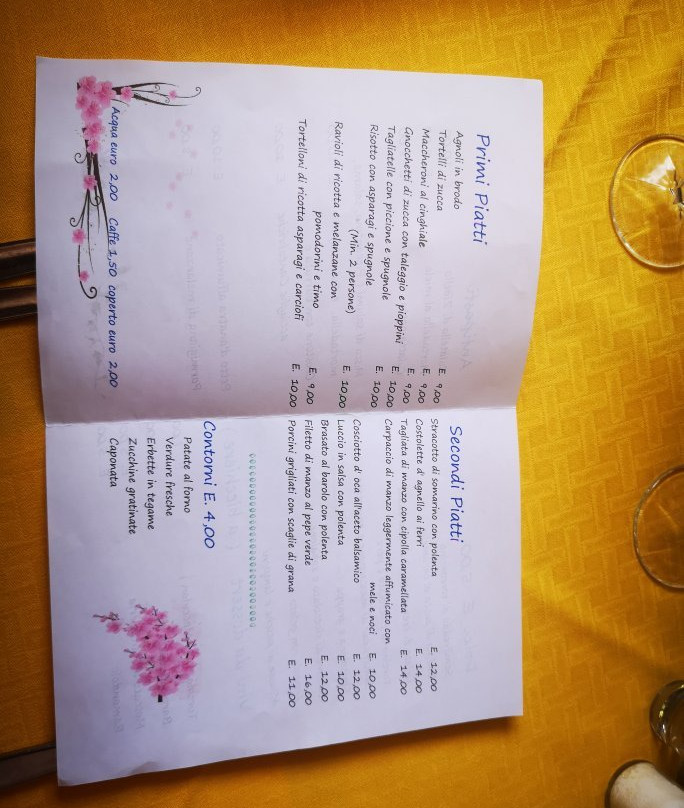 Primi Piatti
Agnoli in brodo E. 9,00
Tortelli di zucca E. 9,00
Maccheroni al cinghiale E. 9,00
Gnocchetti di zucca con taleggio e pioppini E. 10,00
Tagliatelle con piccione e spugnole E. 10,00
Risotto con asparagi e spugnole
(Min. 2 persone) E. 10,00
Ravioli di ricotta e melanzane con
pomodorini e timo E. 9,00
Tortelloni di ricotta asparagi e carciofi E. 10,00
Acqua euro 2,00 Caffe 1,50 coperto euro 2,00
Secondi Piatti
Stracotto di somarino con polenta E. 12,00
Costolette d' agnello ai ferri E. 14,00
Tagliata di manzo con cipolla caramellata E. 14,00
Carpaccio di manzo leggermente affumicato con
mele e noci E. 10,00
Cosciotto d' oca all'aceto balsamico E. 12,00
Luccio in salsa con polenta E. 10,00
Brasato al barolo con polenta E. 12,00
Filetto di manzo al pepe verde E. 16,00
Porcini grigliati con scaglie di grana E. 11,00
Contorni E. 4,00
Patate al forno
Verdure fresche
Erbette in tegame
Zucchine gratinate
Caponata